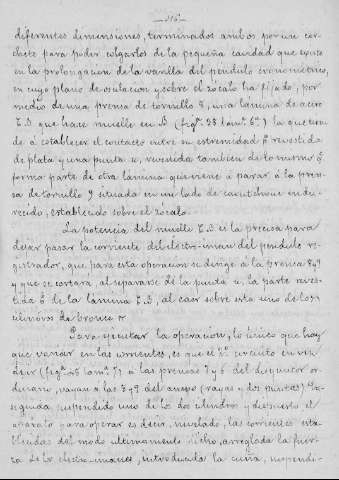 diferentes dimensiones, terminados ambos por un cor
chete para poder colgarlos de la pequeña cavidad que existe
en la prolongacion de la varilla del péndulo cronométrico,
en cuyo plano de oscilacion y sobre el zócalo ha fijado, por
medio de una prensa de tornillo 8, una lámina de acero
que hace muelle en B (figª 28 lamª 6ª) la que tiene
á establecer el contacto entre su estremidad revestida
de plata y una punta u, revestida tambien de lo mismo q.
forma parte de otra lámina que viene á parar á la pren
sa de tornillo 9 situada en un lado de caoutchouc endu
recido, establecido sobre el zócalo.
La potencia del muelle es la precisa para
dejar pasar la corriente del electro-iman del péndulo re
gistrador, que para esta operacion se dirige á la prensa 8 y 9
y que se cortará, al separarse de la punta u, la parte reves
tida de la lámina B, al caer sobre esta uno de los ci
lindros de bronce
Para ejecutar la operacion, lo único que hay
que variar en las corrientes, es que el circuito en vez
decir (figª lamª 7) á las prensas 7 y 6 del disyuntor or
dinario, vayan á las 8 y 9 del anejo (rayas y dos puntos)
seguida suspendido uno de los dos cilindros y dispuesto el
aparato para operar es decir, nivelado, las corrientes esta
blecidas del modo ultimamente dicho, arreglada la fuerza
de los electro-imanes, introducida la cuña, suspendi-